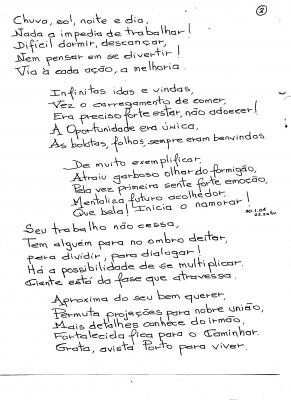 3
Chuva, sol, noite e dia,
Nada a impedia de trabalhar!
Difícil dormir, descançar,
Nem pensar em se divertir!
Via à cada ação, a melhoria.
Infinitas idas e vindas,
Vez o carregamento de comer,
Era preciso forte estar, não adoecer!
A Oportunidade era única,
As bolotas, folhas, sempre eram benvindas.
De muito exemplificar,
Atraiu garboso olhar do formigão,
Pela vez primeira sente forte emoção,
Mentaliza futuro acolhedor.
Que bela! Inicia o namorar!
Seu trabalho não cessa,
Tem alguém para no ombro deitar,
para dividir, para dialogar!
Há a possibilidade de se multiplicar.
Ciente está da fase que atravessa.
Aproxima do seu bem querer,
Permuta projeções para nobre união,
Mais detalhes conhece do irmão,
Fortalecida fica para o Caminhar.
Grata, avista Porto para viver.